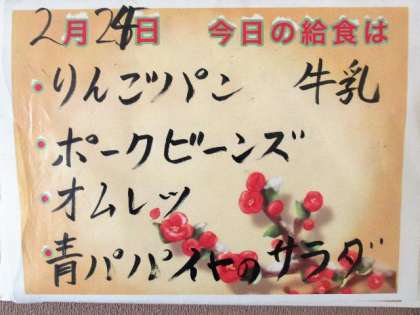 2月24日 今日の給食は
・りんごパン 牛乳
・ポークビーンズ
・オムレツ
・青パパイヤのサラダ